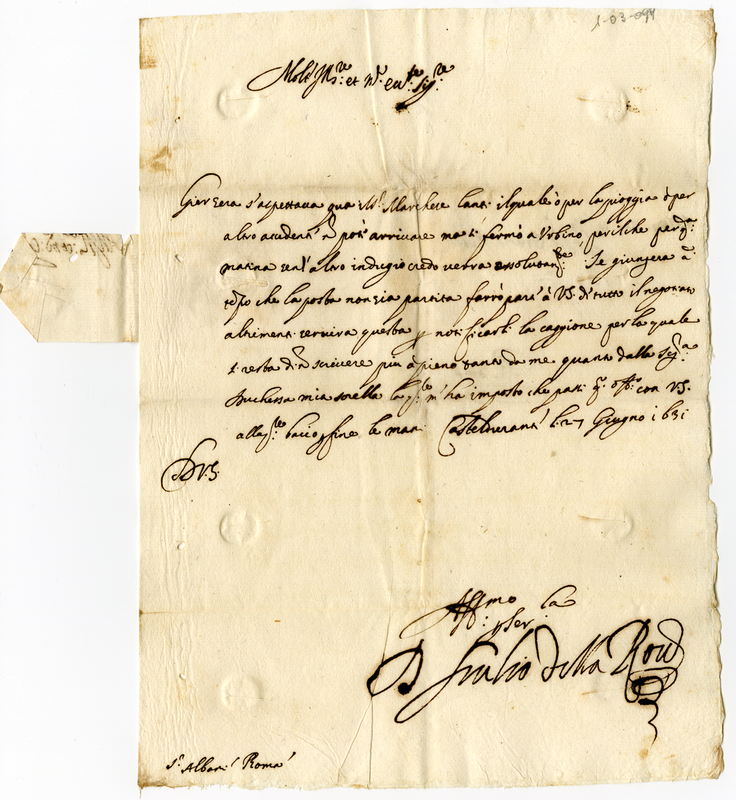 1-03-094
Molt' Ill.re et m.to ecc.te Sig.re
Hier sera s'aspettava qua il S.r Marchese Lanti il quale ò per la pioggia ò per
altro accidente ñ potè arrivare ma si fermò a Urbino, per il che per q.ta
matina senz'altro indugio credo verrà assolutam.te Se giungerà ã
tempo che la posta non sia partita farrò parte à V.S. di tutto il negotiato
altrimenti servirà questa p notificarli la caggione per la quale
si resta di ñ scrivere più a pieno tanto da me quanto dalla Sig.ra
Duchessa mia sorella la q.le m'ha imposto che passi q.to off.o con V.S.
alla q.le bacio p fine le mani Casteldurante li 27 Giugno 1631
Di V.S.
Aff.mo p ser.la
D Giulio della Rov.e
S.r Albani Roma